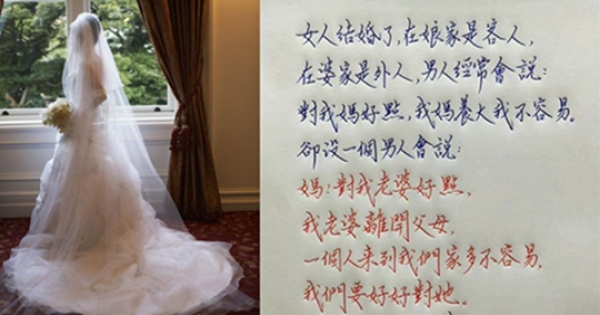 女人结婚了,在娘家是客人,
在婆家是外人,男人經常會説:
對我媽好點,我媽養大我不容易。
卻没一個男人會説:
媽:對我老婆好點,
我老婆離開父母,
一個人来到我們家多不容易,
我們要好好對她。